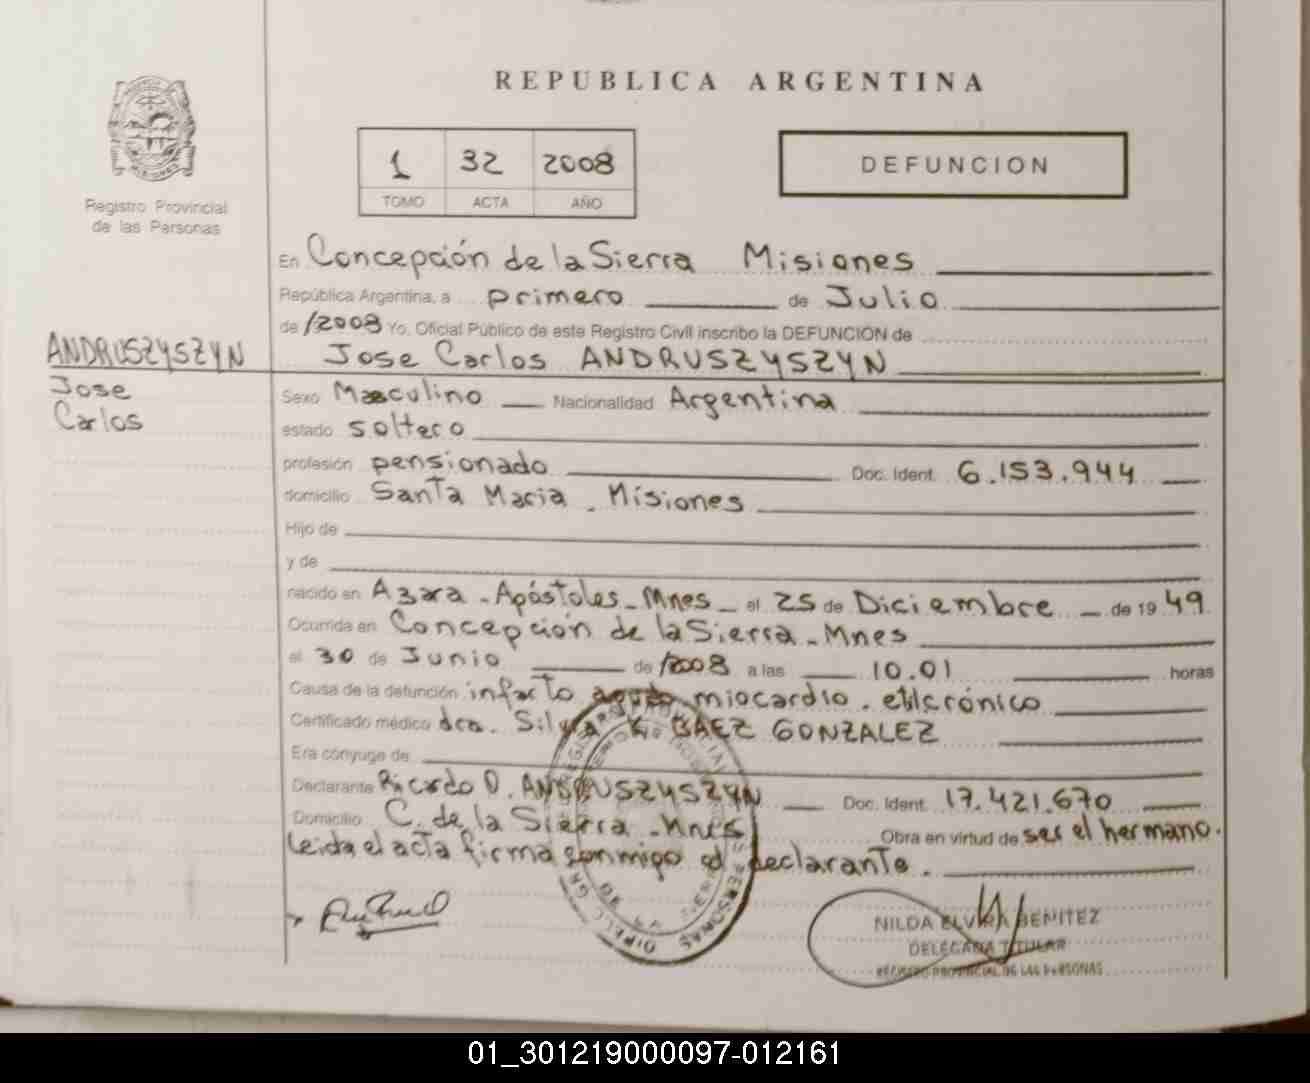 REPUBLICA ARGENTINA
1 32 2008
TOMO ACTA AÑO
DEFUNCION
Registro Provincial
de las Personas
En Concepción de la Sierra Misiones
República Argentina, a primero de Julio
de /2008 Yo, Oficial Público de este Registro Civil inscribo la DEFUNCION de
Jose Carlos ANDRUSZYSZYN
ANDRUSZYSZYN
Jose
Carlos
Sexo Masculino Nacionalidad Argentina
estado soltero
profesión pensionado Doc. Ident. 6.153.944
domicilio Santa Maria . Misiones
Hijo de
y de
nacido en Azara - Apóstoles - Mnes - el 25 de Diciembre - de 19 49
Ocurrida en Concepción de la Sierra - Mnes
el 30 de Junio de /2008 a las 10.01 horas
Causa de la defunción infarto agudo miocardio .
Certificado médico dra. Silvia K. BAEZ GONZALEZ
Era cónyuge de
Declarante Ricardo D. ANDRUSZYSZYN Doc. Ident. 17.421.670
Domicilio C. de la Sierra - Mnes Obra en virtud de ser el hermano.
Leida el acta firma conmigo el declarante.
NILDA ELVIRA BENITEZ
DELEGADA TITULAR
REGISTRO PROVINCIAL DE LAS PERSONAS
01_301219000097-012161